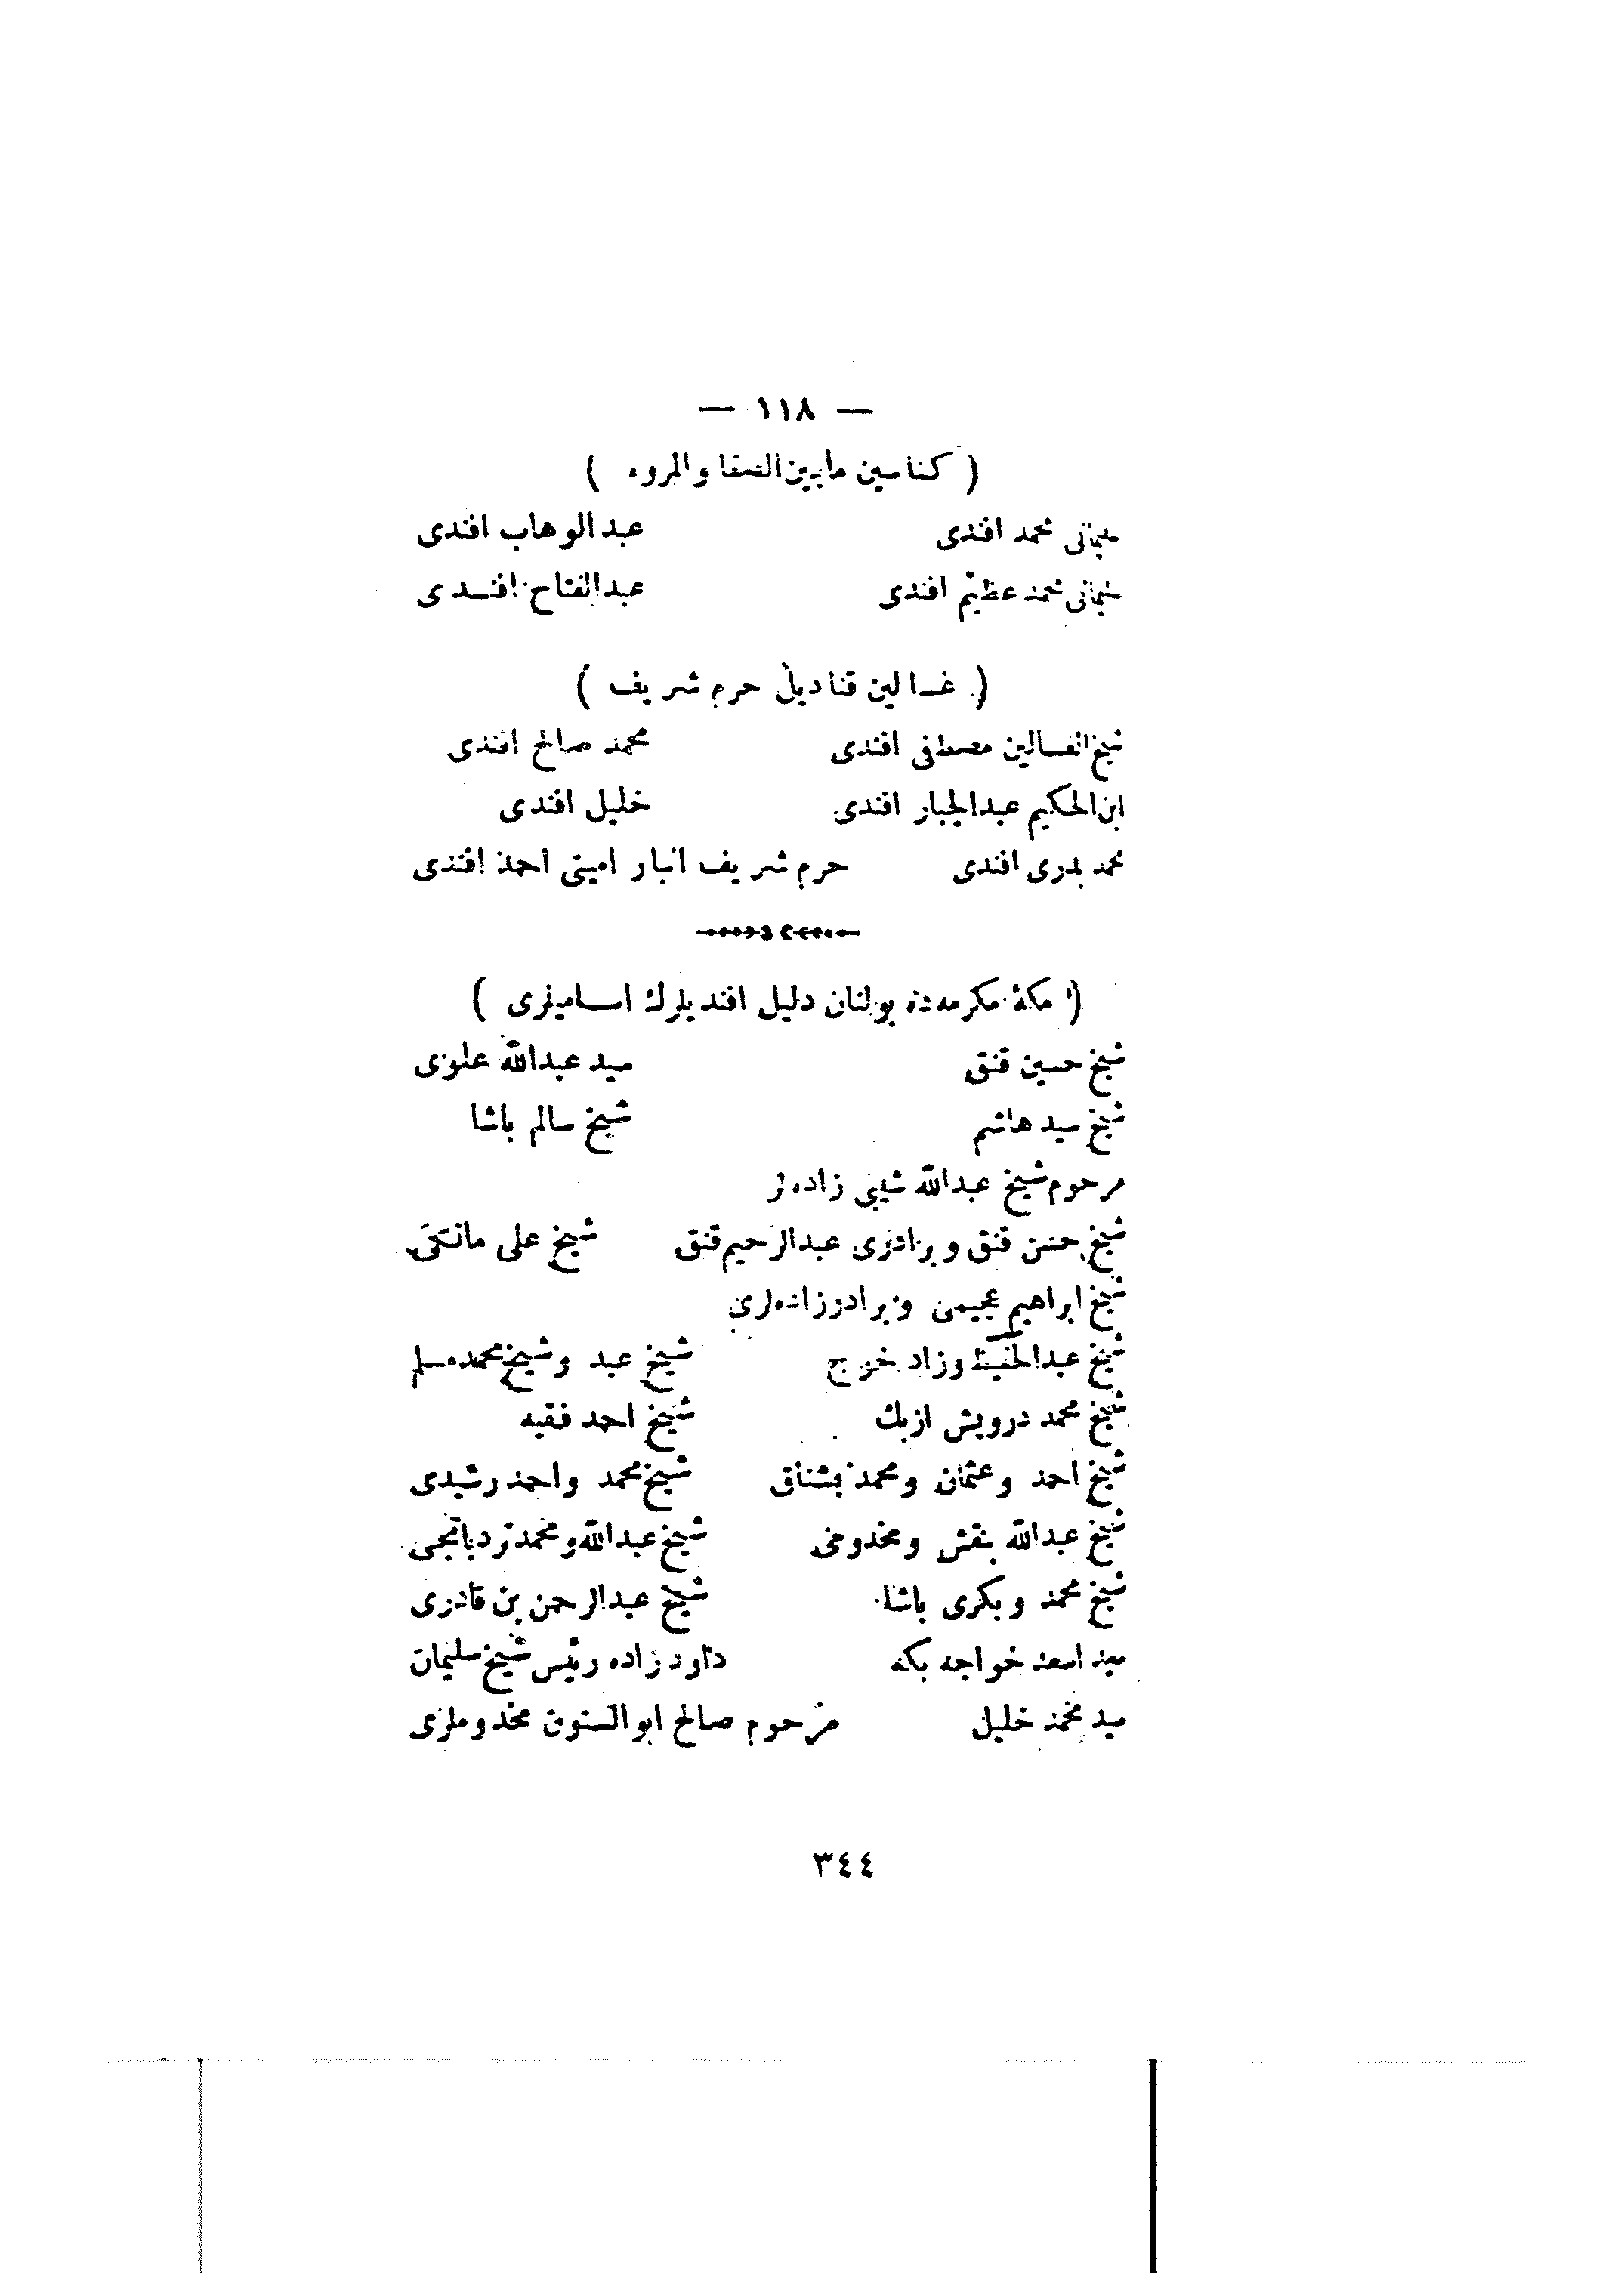 — ١١٨ —
( كناسين مابين الصفا والمروه )
سليمانى محمد افندى عبد الوهاب افندى
سليمانى محمد عظيم افندى عبد الفتاح افندى
( غسالين قناديل حرم شريف )
شيخ الغسالين مصطفى افندى محمد صالح افندى
ابن الحكيم عبدالجبار افندى خليل افندى
محمد بدرى افندى حرم شريف انبار امينى احمد افندى
( مكۀ مكرمه ده بولنان دليل افنديلرك اساميلرى )
شيخ حسين قنق سيد عبدالله علوى
شيخ سيد هاشم شيخ سالم باشا
مرحوم شيخ عبدالله شيبى زاده لر
شيخ حسن قنق و برادرى عبدالرحيم قنق شيخ على مانكى
شيخ ابراهيم عجيمى و برادر زاده لرى
شيخ عبدالحفيظ وزاد خوج شيخ عبد وشيخ محمد مسلم
شيخ محمد درويش ازبك شيخ احمد فقيه
شيخ احمد وعثمان ومحمد بشناق شيخ محمد واحمد رشيدى
شيخ عبدالله بنقش ومخدومى شيخ عبدالله ومحمد
شيخ محمد وبكرى باشا شيخ عبدالرحمن بن قادرى
سيد اسعد خواجه بكه داود زاده رئيس شيخ سليمان
سيد محمد خليل مرحوم صالح ابو الستون مخدوملرى
٣٤٤